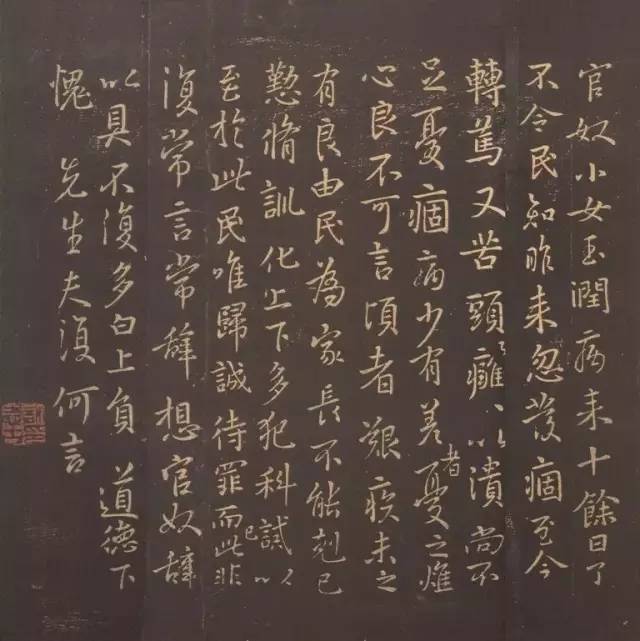 官奴小女玉潤病来十餘日了
不令民知昨来忽發痼至今
轉篤又苦頭癰〻以潰尚不
足憂痼病少有差者憂之燋
心良不可言頃者艱疾未之
有良由民為家長不能剋己
懃脩訓化上下多犯科誡以
至於此民唯歸誠待罪而此非
復常言常辭想官奴辭
以具不復多白上負道德下
愧先生夫復何言